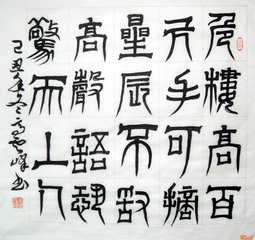 危樓高百
尺手可摘
星辰不敢
高聲語恐
驚天上人
己丑年冬